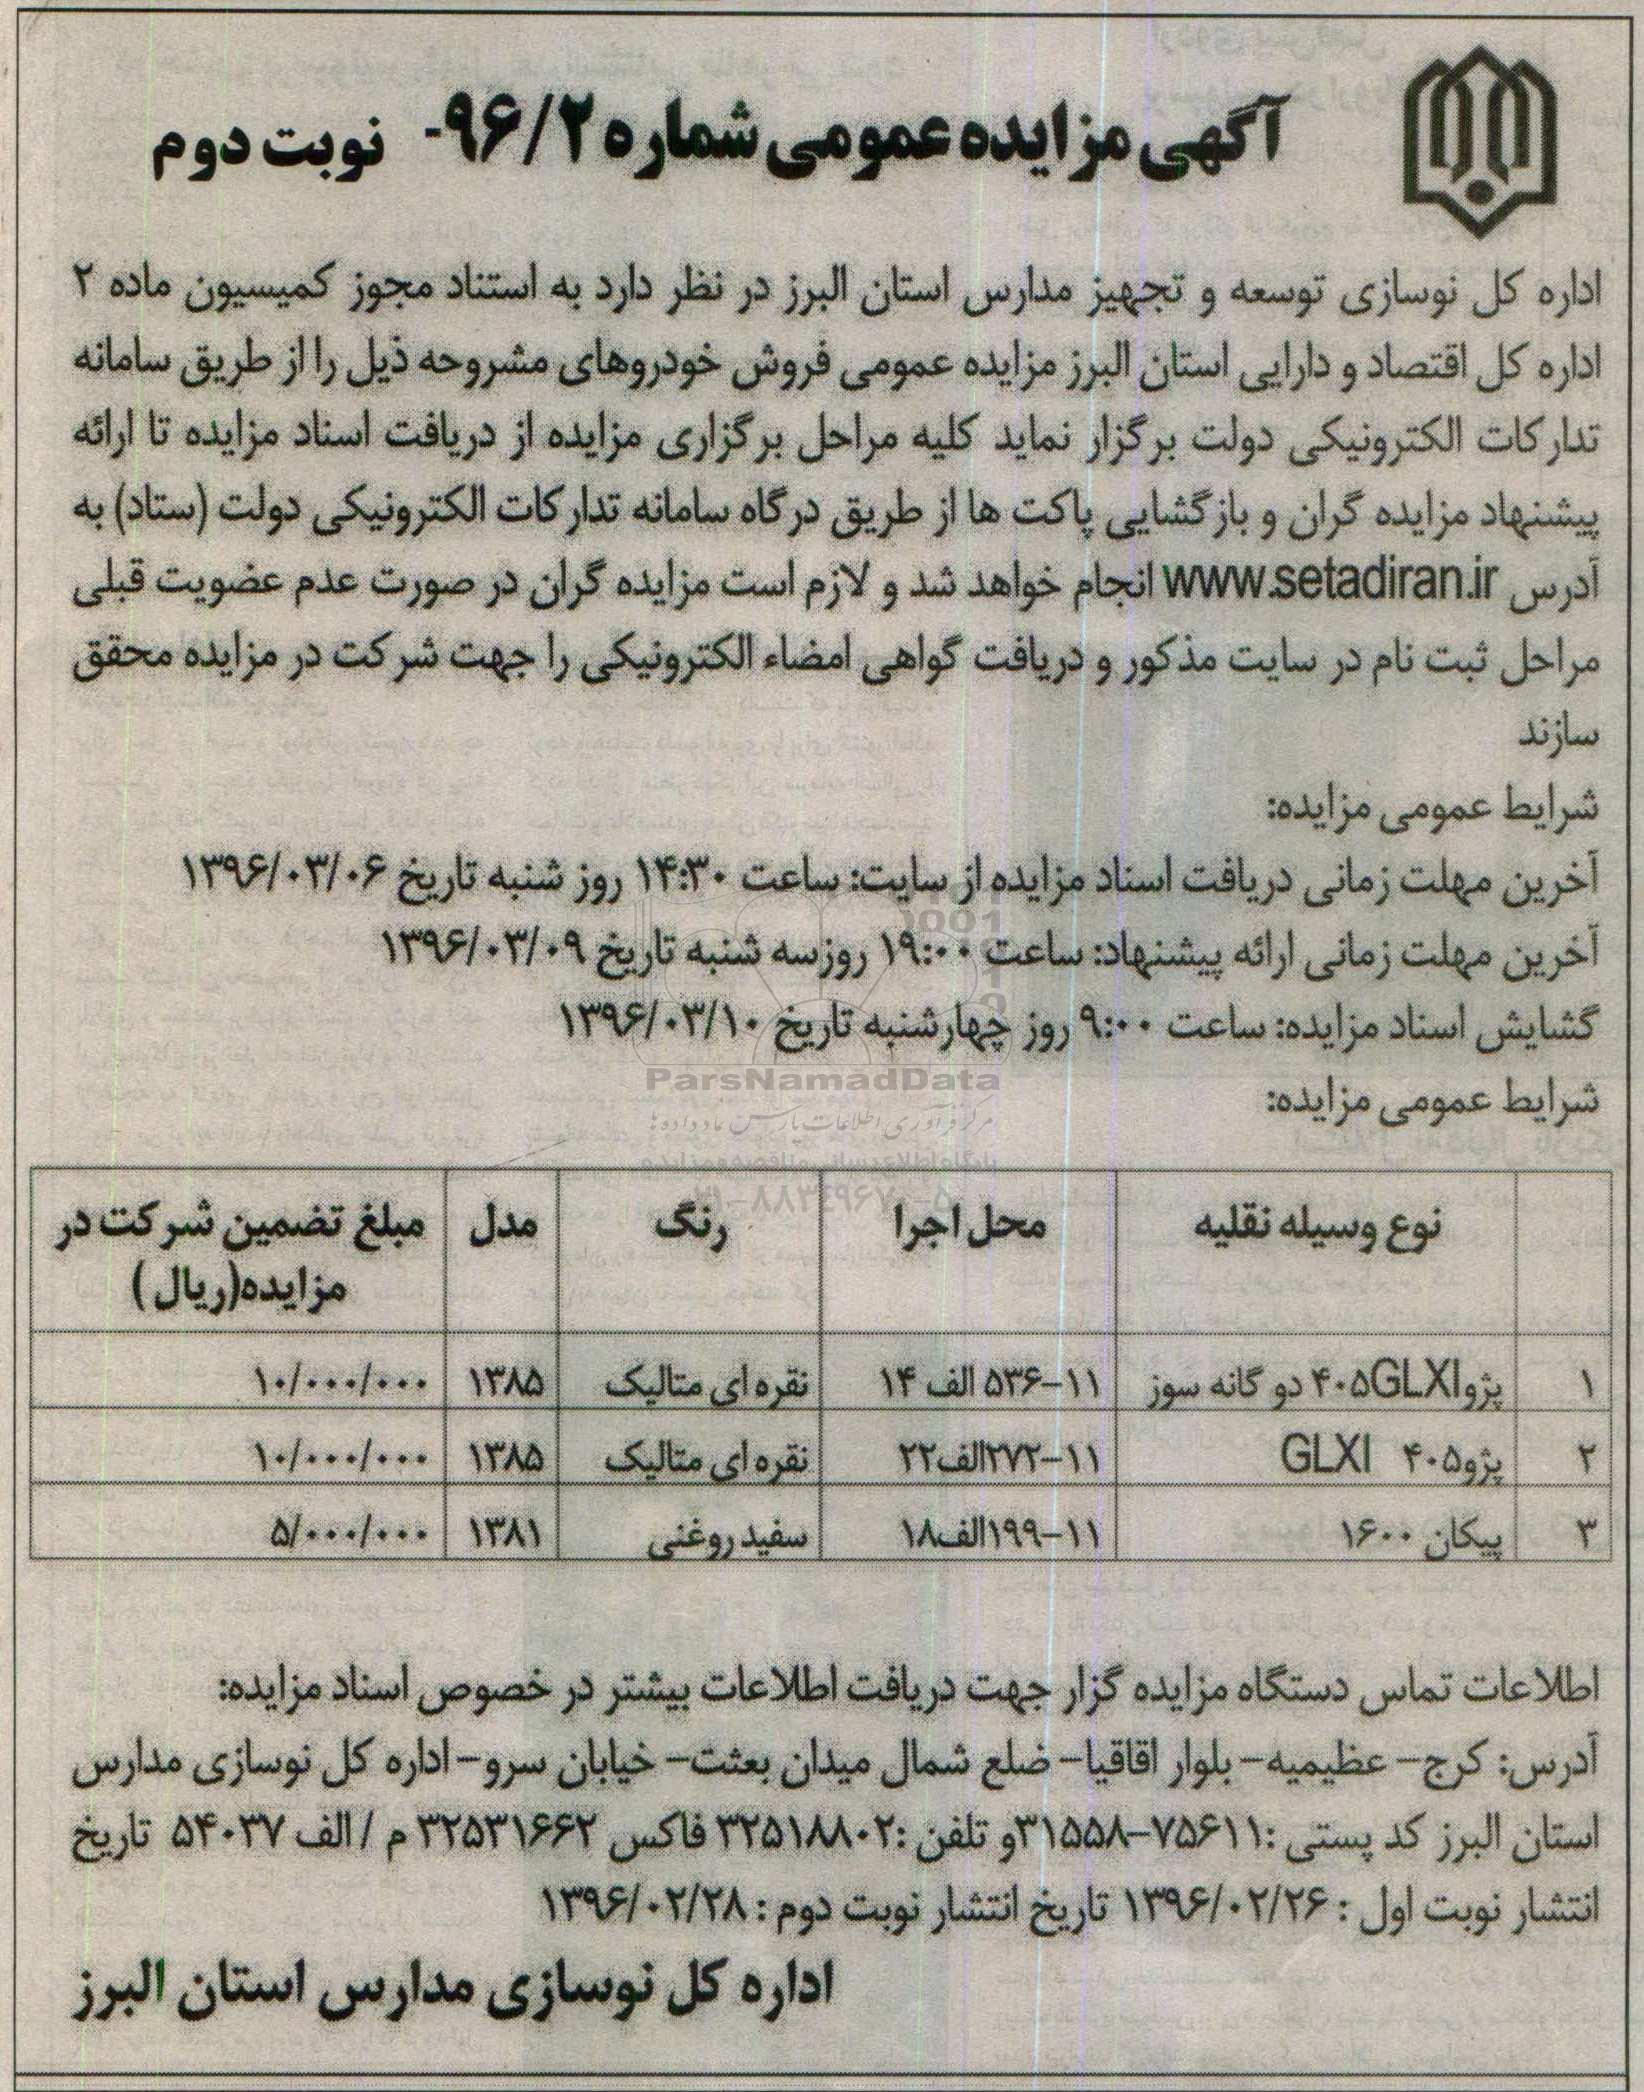 آگهی مزایده عمومی شماره ۹۶/۲- نوبت دوم
اداره کل نوسازی توسعه و تجهیز مدارس استان البرز در نظر دارد به استناد مجوز کمیسیون ماده ۲
اداره کل اقتصاد و دارایی استان البرز مزایده عمومی فروش خودروهای مشروحه ذیل را از طریق سامانه
تدارکات الکترونیکی دولت برگزار نماید کلیه مراحل برگزاری مزایده از دریافت اسناد مزایده تا ارائه
پیشنهاد مزایده گران و بازگشایی پاکت ها از طریق درگاه سامانه تدارکات الکترونیکی دولت (ستاد) به
آدرس www.setadiran.ir انجام خواهد شد و لازم است مزایده گران در صورت عدم عضویت قبلی
مراحل ثبت نام در سایت مذکور و دریافت گواهی امضاء الکترونیکی را جهت شرکت در مزایده محقق
سازند
شرایط عمومی مزایده:
آخرین مهلت زمانی دریافت اسناد مزایده از سایت: ساعت ۱۴:۳۰ روز شنبه تاریخ ۱۳۹۶/۰۳/۰۶
آخرین مهلت زمانی ارائه پیشنهاد: ساعت ۱۹:۰۰ روزسه شنبه تاریخ ۱۳۹۶/۰۳/۰۹
گشایش اسناد مزایده: ساعت ۹:۰۰ روز چهارشنبه تاریخ ۱۳۹۶/۰۳/۱۰
ParsNamadData
شرایط عمومی مزایده:
مرکز فرآوری اطلاعات پارس نماد داده ها
پایگاه اطلاع رسانی مناقصه و مزایده
۰۲۱-۸۸۳۴۹۶۷۰-۵
نوع وسیله نقلیه محل اجرا رنگ مدل مبلغ تضمین شرکت در
مزایده(ریال)
۱ پژو۴۰۵GLXI دو گانه سوز ۱۱-۵۳۶ الف ۱۴ نقره ای متالیک ۱۳۸۵ ۱۰/۰۰۰/۰۰۰
۲ پژو۴۰۵ GLXI ۱۱-۲۷۲الف۲۲ نقره ای متالیک ۱۳۸۵ ۱۰/۰۰۰/۰۰۰
۳ پیکان ۱۶۰۰ ۱۱-۱۹۹الف۱۸ سفید روغنی ۱۳۸۱ ۵/۰۰۰/۰۰۰
اطلاعات تماس دستگاه مزایده گزار جهت دریافت اطلاعات بیشتر در خصوص اسناد مزایده:
آدرس: کرج- عظیمیه- بلوار اقاقیا- ضلع شمال میدان بعثت- خیابان سرو- اداره کل نوسازی مدارس
استان البرز کد پستی :۷۵۶۱۱-۳۱۵۵۸و تلفن :۳۲۵۱۸۸۰۲ فاکس ۳۲۵۳۱۶۶۲ م / الف ۵۴۰۳۷ تاریخ
انتشار نوبت اول : ۱۳۹۶/۰۲/۲۶ تاریخ انتشار نوبت دوم : ۱۳۹۶/۰۲/۲۸
اداره کل نوسازی مدارس استان البرز